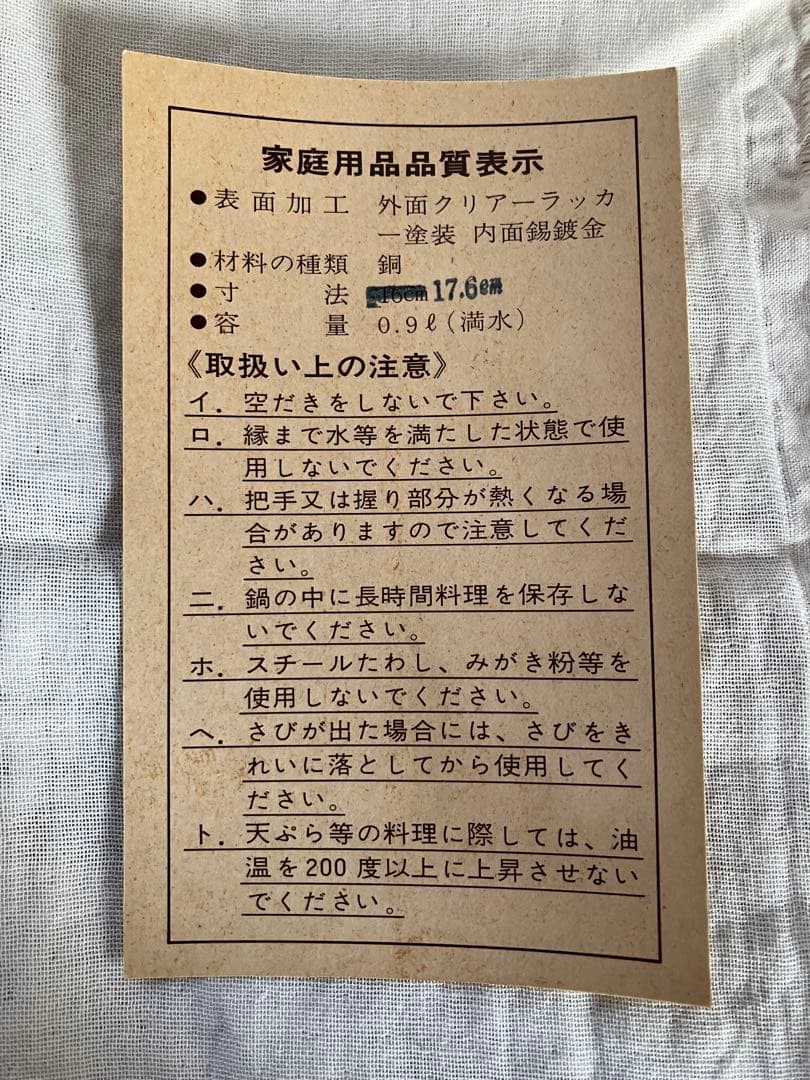 家庭用品品質表示
●表面加工 外面クリアーラッカ
ー塗装 内面錫鍍金
●材料の種類 銅
●寸法 16cm 17.6cm
●容量 0.9ℓ(満水)
《取扱い上の注意》
イ. 空だきをしないで下さい。
ロ. 縁まで水等を満たした状態で使
用しないでください。
ハ. 把手又は握り部分が熱くなる場
合がありますので注意してくだ
さい。
ニ. 鍋の中に長時間料理を保存しな
いでください。
ホ. スチールたわし、みがき粉等を
使用しないでください。
ヘ. さびが出た場合には、さびをき
れいに落としてから使用してく
ださい。
ト. 天ぷら等の料理に際しては、油
温を200度以上に上昇させない
でください。